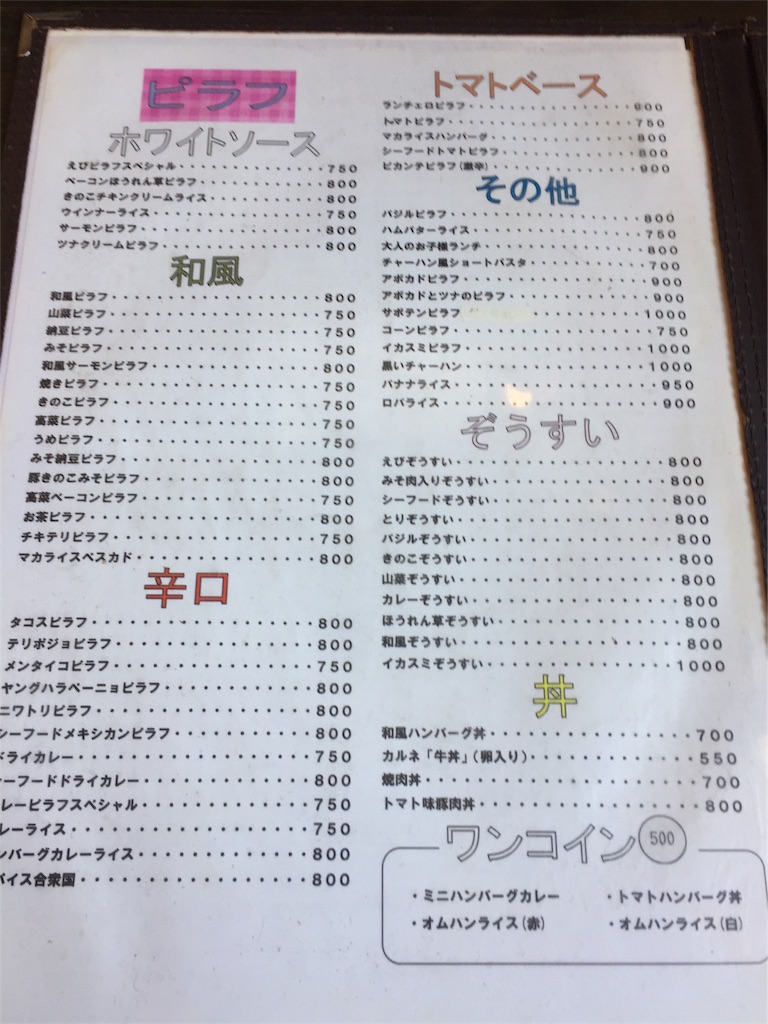 ピラフ
ホワイトソース
えびピラフスペシャル・・・・・・・・・・・・750
ベーコンほうれん草ピラフ・・・・・・・・・・800
きのこチキンクリームライス・・・・・・・・・800
ウインナーライス・・・・・・・・・・・・・・750
サーモンピラフ・・・・・・・・・・・・・・・800
ツナクリームピラフ・・・・・・・・・・・・・800
和風
和風ピラフ・・・・・・・・・・・・・・・・・800
山菜ピラフ・・・・・・・・・・・・・・・・・750
納豆ピラフ・・・・・・・・・・・・・・・・・750
みそピラフ・・・・・・・・・・・・・・・・・750
和風サーモンピラフ・・・・・・・・・・・・・800
焼きピラフ・・・・・・・・・・・・・・・・・750
きのこピラフ・・・・・・・・・・・・・・・・750
高菜ピラフ・・・・・・・・・・・・・・・・・750
うめピラフ・・・・・・・・・・・・・・・・・750
みそ納豆ピラフ・・・・・・・・・・・・・・・800
豚きのこみそピラフ・・・・・・・・・・・・・800
高菜ベーコンピラフ・・・・・・・・・・・・・750
お茶ピラフ・・・・・・・・・・・・・・・・・800
チキテリピラフ・・・・・・・・・・・・・・・750
マカライスペスカド・・・・・・・・・・・・・800
辛口
タコスピラフ・・・・・・・・・・・・・・・・800
テリポジョピラフ・・・・・・・・・・・・・・800
メンタイコピラフ・・・・・・・・・・・・・・750
ヤングハラペーニョピラフ・・・・・・・・・・800
ニワトリピラフ・・・・・・・・・・・・・・・800
シーフードメキシカンピラフ・・・・・・・・・800
ドライカレー・・・・・・・・・・・・・・・・750
ーフードドライカレー・・・・・・・・・・・・800
レーピラフスペシャル・・・・・・・・・・・・750
レーライス・・・・・・・・・・・・・・・・・750
ンバーグカレーライス・・・・・・・・・・・・800
パイス合衆国・・・・・・・・・・・・・・・・800
トマトベース
ランチェロピラフ・・・・・・・・・・・・・・900
トマトピラフ・・・・・・・・・・・・・・・・750
マカライスハンバーグ・・・・・・・・・・・・800
シーフードトマトピラフ・・・・・・・・・・・800
ピカンテピラフ(激辛)・・・・・・・・・・・・900
その他
バジルピラフ・・・・・・・・・・・・・・・・800
ハムバターライス・・・・・・・・・・・・・・750
大人のお子様ランチ・・・・・・・・・・・・・800
チャーハン風ショートパスタ・・・・・・・・・700
アボカドピラフ・・・・・・・・・・・・・・・900
アボカドとツナのピラフ・・・・・・・・・・・900
サボテンピラフ・・・・・・・・・・・・・・・1000
コーンピラフ・・・・・・・・・・・・・・・・750
イカスミピラフ・・・・・・・・・・・・・・・1000
黒いチャーハン・・・・・・・・・・・・・・・1000
バナナライス・・・・・・・・・・・・・・・・950
ロバライス・・・・・・・・・・・・・・・・・900
ぞうすい
えびぞうすい・・・・・・・・・・・・・・・・800
みそ肉入りぞうすい・・・・・・・・・・・・・800
シーフードぞうすい・・・・・・・・・・・・・800
とりぞうすい・・・・・・・・・・・・・・・・800
バジルぞうすい・・・・・・・・・・・・・・・800
きのこぞうすい・・・・・・・・・・・・・・・800
山菜ぞうすい・・・・・・・・・・・・・・・・800
カレーぞうすい・・・・・・・・・・・・・・・800
ほうれん草ぞうすい・・・・・・・・・・・・・800
和風ぞうすい・・・・・・・・・・・・・・・・800
イカスミぞうすい・・・・・・・・・・・・・・1000
丼
和風ハンバーグ丼・・・・・・・・・・・・・・700
カルネ「牛丼」(卵入り)・・・・・・・・・・・550
焼肉丼・・・・・・・・・・・・・・・・・・・700
トマト味豚肉丼・・・・・・・・・・・・・・・800
ワンコイン 500
・ミニハンバーグカレー ・トマトハンバーグ丼
・オムハンライス(赤) ・オムハンライス(白)